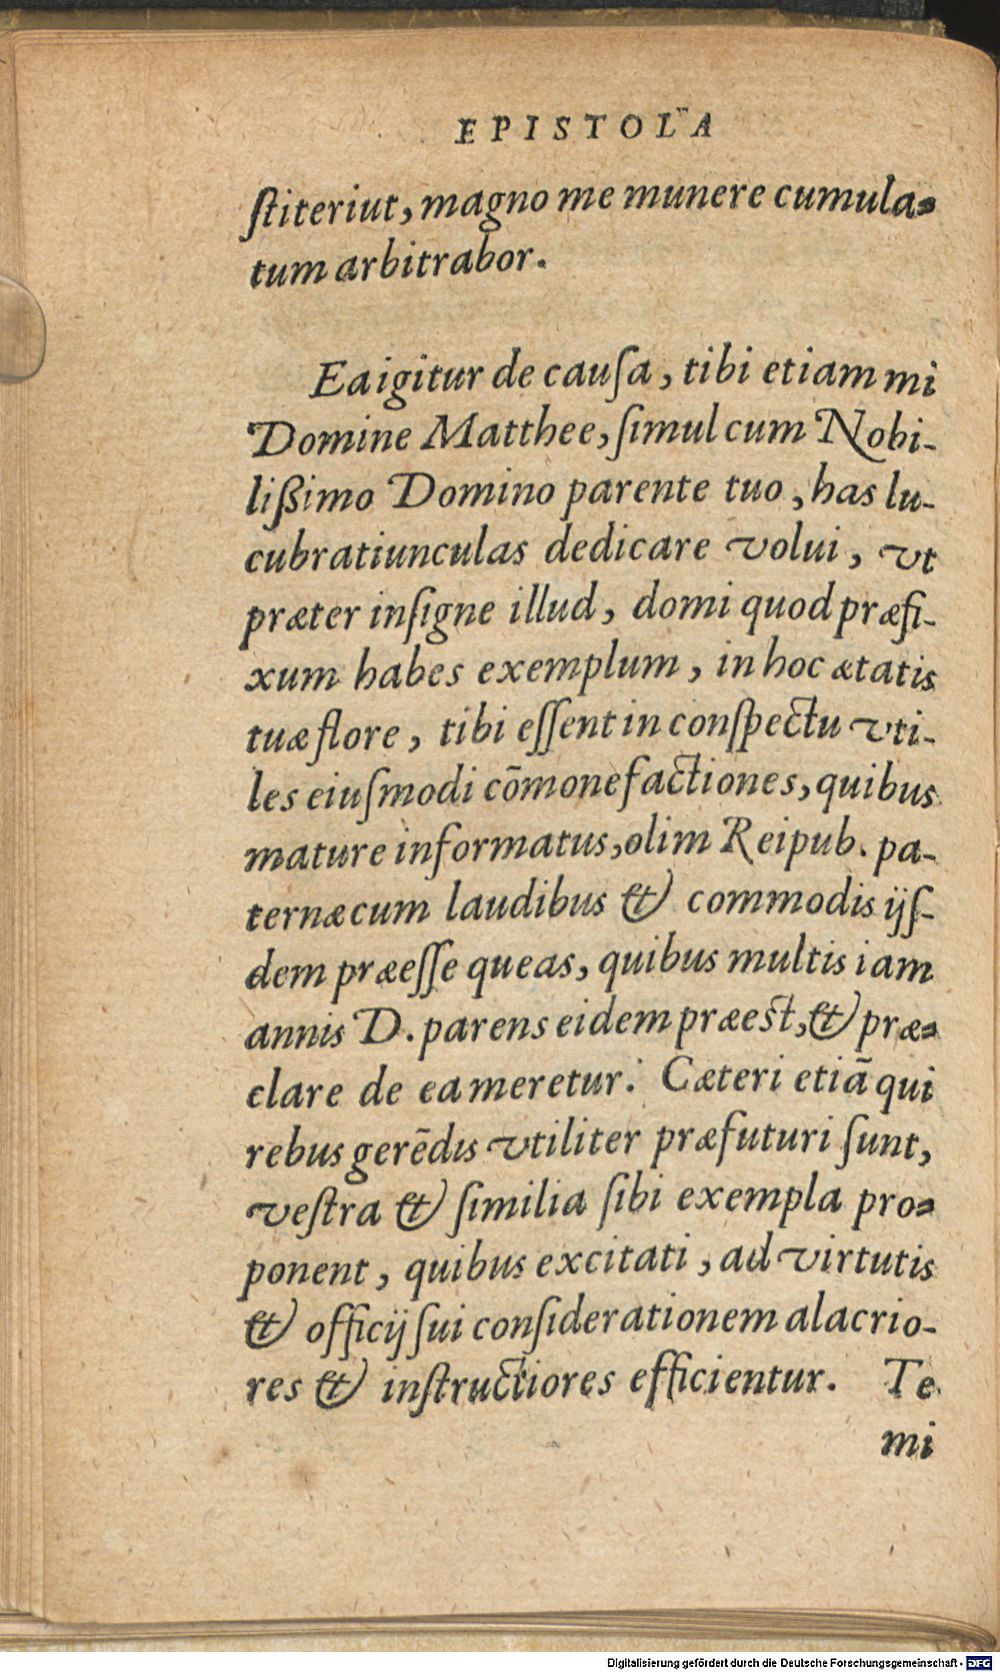 EPISTOLA
ſtiteriut, magno me munere cumula-
tum arbitrabor.
Ea igitur de cauſa, tibi etiam mi
Domine Matthee, ſimul cum Nobi-
lißimo Domino parente tuo, has lu-
cubratiunculas dedicare volui, vt
præter inſigne illud, domi quod præfi-
xum habes exemplum, in hoc ætatis
tuæ flore, tibi eſſent in conſpectu vti-
les eiuſmodi cōmonefactiones, quibus
mature informatus, olim Reipub. pa-
ternæ cum laudibus & commodis ijſ-
dem præeſſe queas, quibus multis iam
annis D. parens eidem præest, & præ-
clare de ea meretur. Cæteri etiā qui
rebus gerēdis vtiliter præfuturi ſunt,
veſtra & ſimilia ſibi exempla pro-
ponent, quibus excitati, ad virtutis
& officij ſui conſiderationem alacrio-
res & inſtructiores efficientur. Te
mi
Digitalisierung gefördert durch die Deutsche Forschungsgemeinschaft - DFG